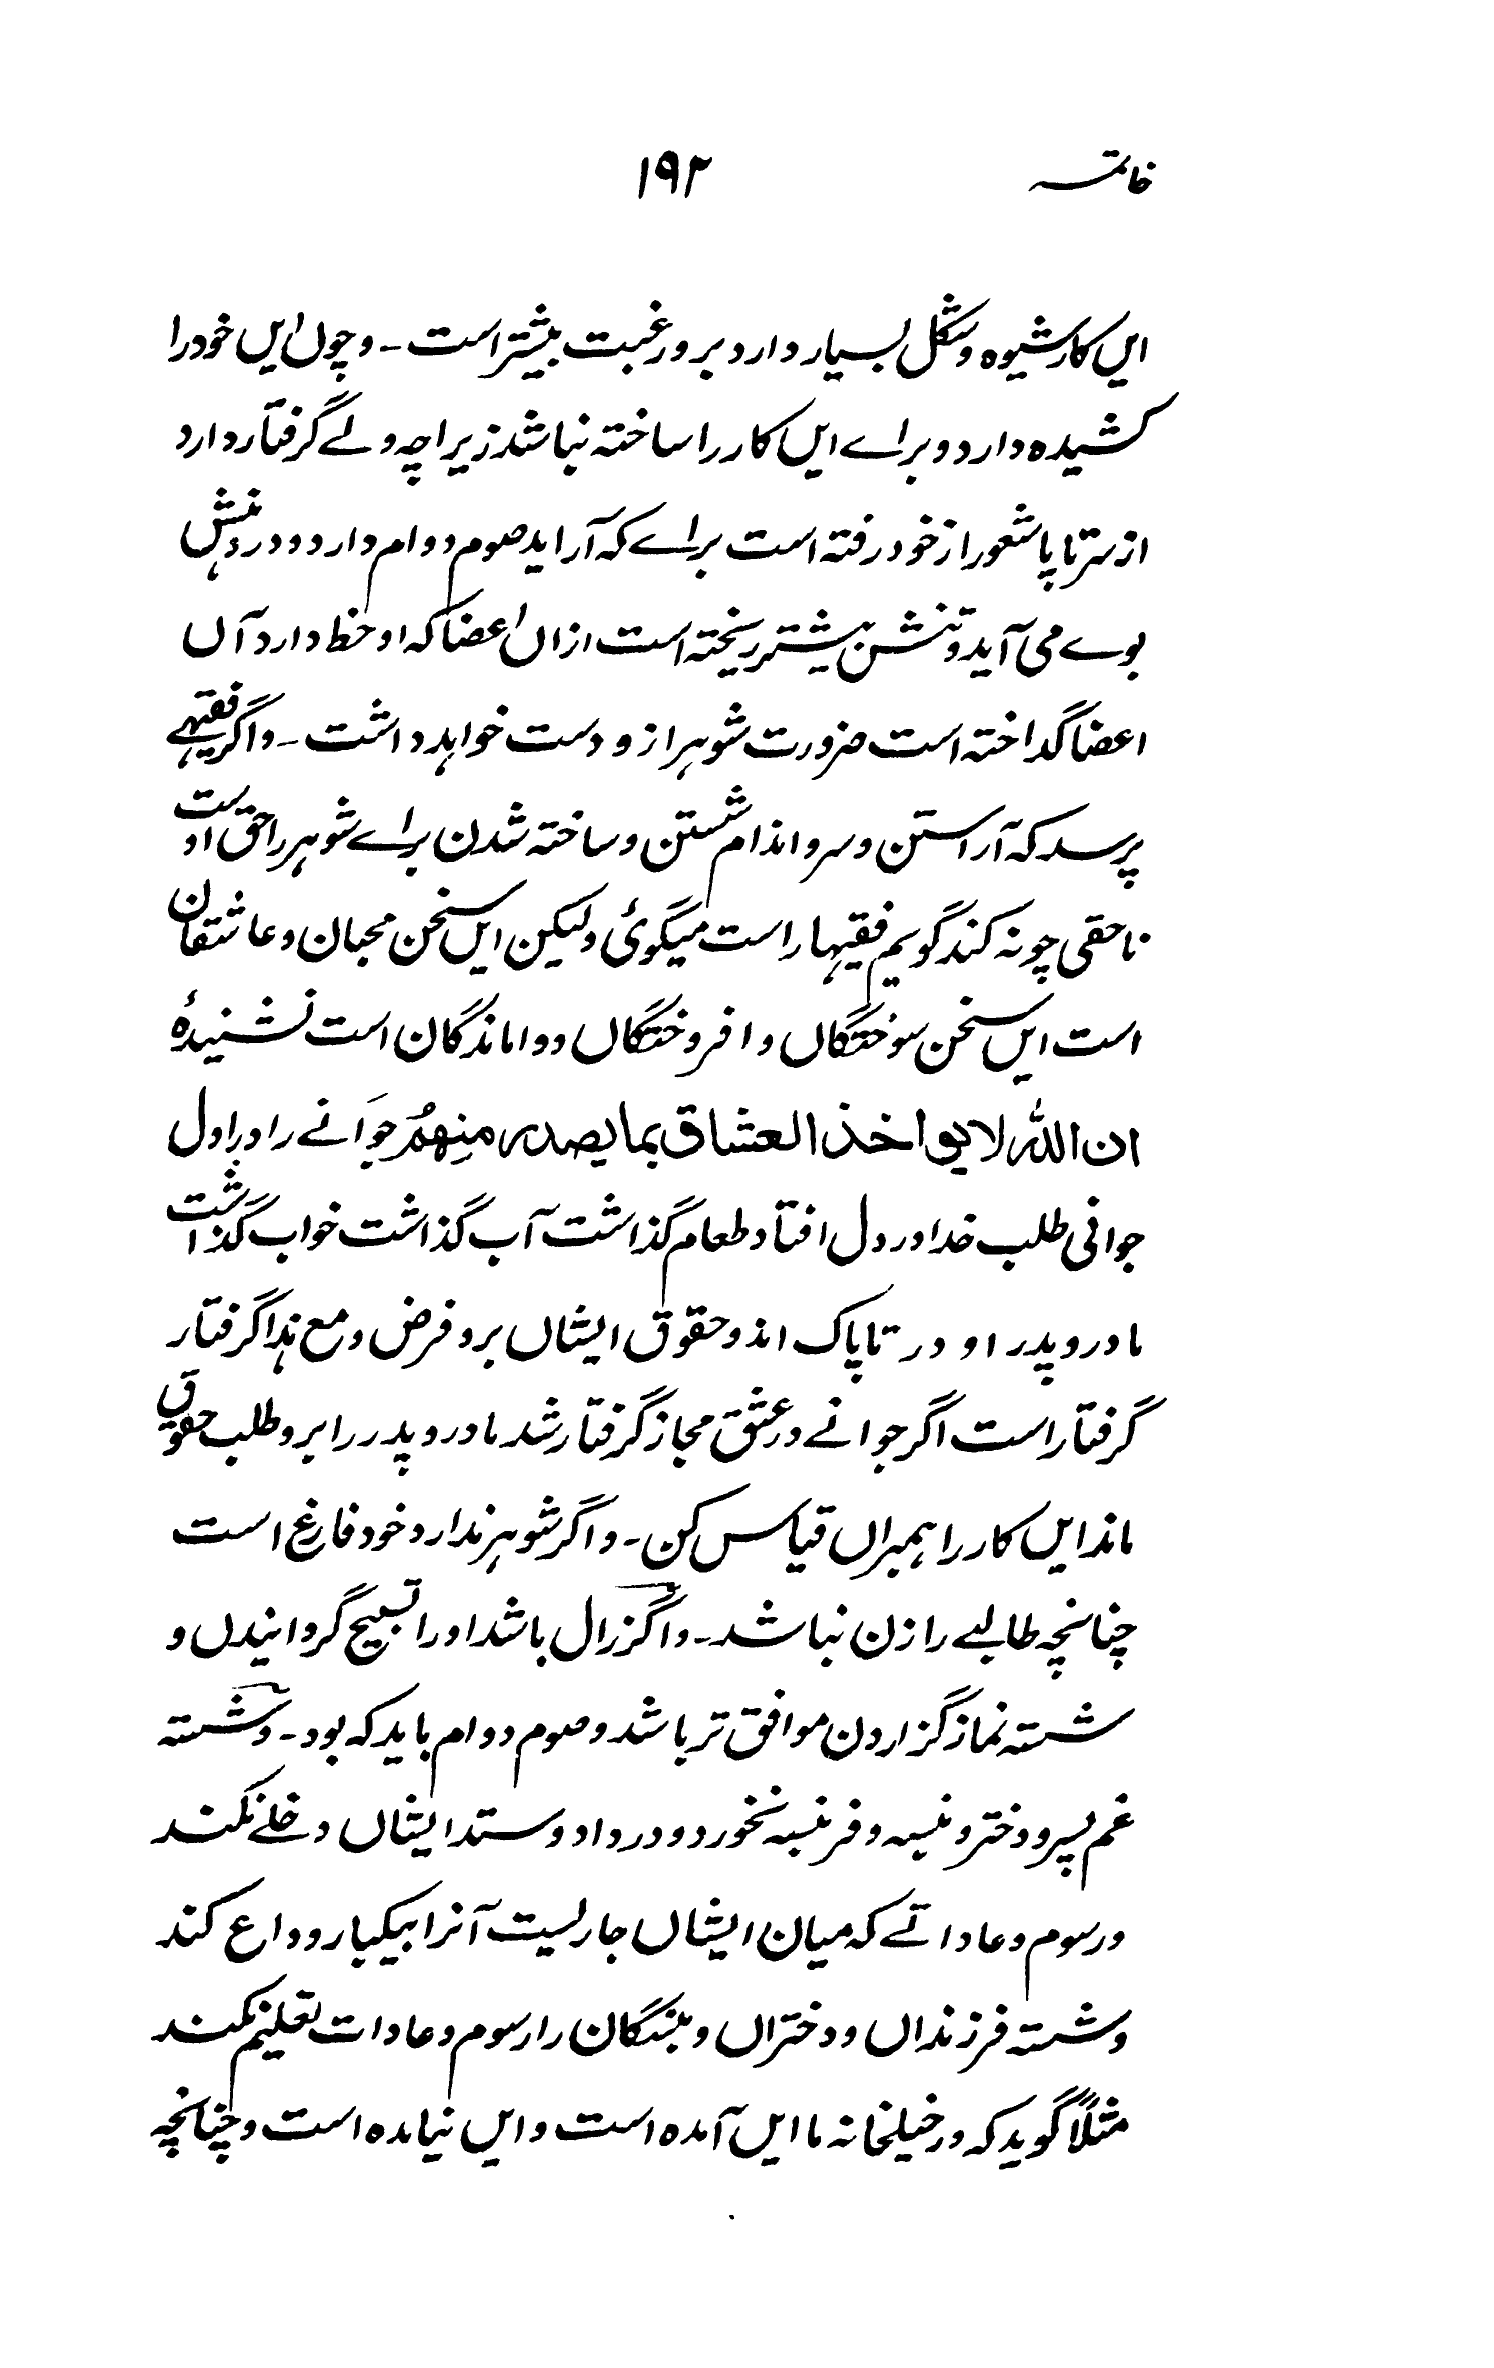 خاتمہ ۱۹۲
ایں کار شیوہ و شکل بسیار دارد برو رغبت بیشتر است ۔ و چوں ایں خود را
کشیدہ دارد و براے ایں کار را ساختہ نباشد زیراچہ ولے گرفتار دارد
از سر تا پا شعور از خود رفتہ است براے کہ آراید صوم دوام دارد و در دہنش
بوے می آید و تنش بیشتر ریختہ است ازاں اعضا کہ او حظ دارد آں
اعضا گداختہ است ضرورت شوہر ازو دست خواہد داشت ۔ و اگر فقیہے
پرسد کہ آراستن و سر و اندام شستن و ساختہ شدن براے شوہر را حق اوست
ناحقی چونہ کند گویم فقیہا راست میگوئی ولیکن ایں سخن محبان و عاشقان
است ایں سخن سوختگاں و افروختگاں و واماندگان است نشنیدۂ
ان اللہ لا یواخذ العشاق بما یصدر منہم جوانے را در اول
جوانی طلب خدا در دل افتاد طعام گذاشت آب گذاشت خواب گذاشت
مادر و پدر او در تاپاک اند و حقوق ایشاں برو فرض و مع ہذا گرفتار
گرفتار است اگر جوانے در عشق مجاز گرفتار شد مادر و پدر را برو طلب حقوق
ماند ایں کار را ہمبراں قیاس کن ۔ و اگر شوہر ندارد خود فارغ است
چنانچہ طالبے را زن نباشد ۔ و اگر زال باشد او را تسبیح گردانیدں و
شستہ نماز گزاردن موافق تر باشد و صوم دوام باید کہ بود ۔ و شستہ
غم پسر و دختر و نبسہ و فرنبسہ نخورد و در داد و ستد ایشاں دخلے نکند
و رسوم و عاداتے کہ میان ایشاں جاریست آنرا بیکبار وداع کند
و شستہ فرزنداں و دختراں و بندگان را رسوم و عادات تعلیم نکند
مثلاً گوید کہ در خیلخانہ ما ایں آمدہ است و ایں نیامدہ است و چنانچہ